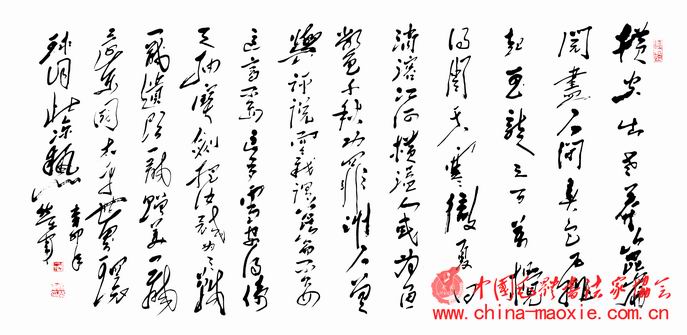 横空出世莽崑崙
阅尽人间春色飞
起玉龙三百万搅
得周天寒徹夏日
消溶江河横溢人或为鱼
鳖千秋功罪谁人曾
與评说而今我谓崑崙不要
这高不要这多雪安得倚
天抽宝剑把汝裁为三截
一截遗欧一截赠美一截
还东国太平世界环
球同此凉热
辛卯年
中国毛体书法家协会
www.china-maoxie.com.cn